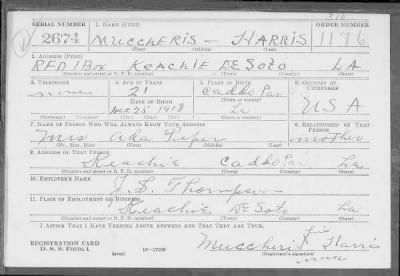 SERIAL NUMBER 1. NAME (Print) ORDER NUMBER
2674 MUCCHERIS – HARRIS 1176
(First) (Middle) (Last)
2. ADDRESS (Print)
RFD 1 Box KEACHIE DESOTO LA
(Number and street or R. F. D. number) (Town) (County) (State)
3. TELEPHONE 4. AGE IN YEARS 5. PLACE OF BIRTH 6. COUNTRY OF CITIZENSHIP
none 21 Caddo Par
DATE OF BIRTH (Town or county)
Dec 25 1918 La USA
(Exchange) (Number) (Mo.) (Day) (Yr.) (State or country)
7. NAME OF PERSON WHO WILL ALWAYS KNOW YOUR ADDRESS 8. RELATIONSHIP OF THAT PERSON
Mrs Ada Piper mother
(Mr., Mrs., Miss) (First) (Middle) (Last)
9. ADDRESS OF THAT PERSON
Keachie Caddo Par La
(Number and street or R. F. D. number) (Town) (County) (State)
10. EMPLOYER'S NAME
J. S. Thompson
11. PLACE OF EMPLOYMENT OR BUSINESS
Keachie DeSoto La
(Number and street or R. F. D. number) (Town) (County) (State)
I AFFIRM THAT I HAVE VERIFIED ABOVE ANSWERS AND THAT THEY ARE TRUE.
REGISTRATION CARD
D. S. S. Form 1 16—17105
Muccheris Harris
his
X
mark
(Registrant's signature)